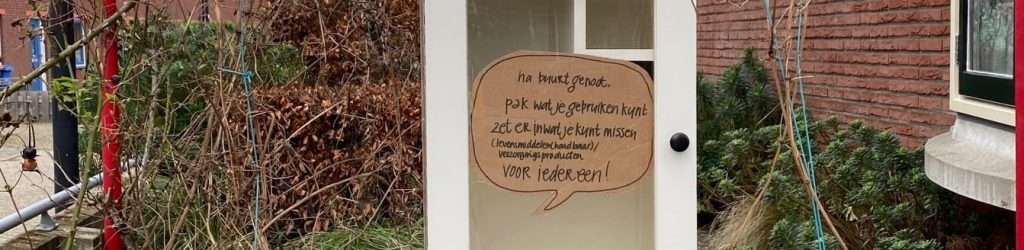 ha buurtgenoot,
pak wat je gebruiken kunt
zet er in wat je kunt missen
(levensmiddelen(houdbaar)/
verzorgingsproducten
VOOR iedereen!